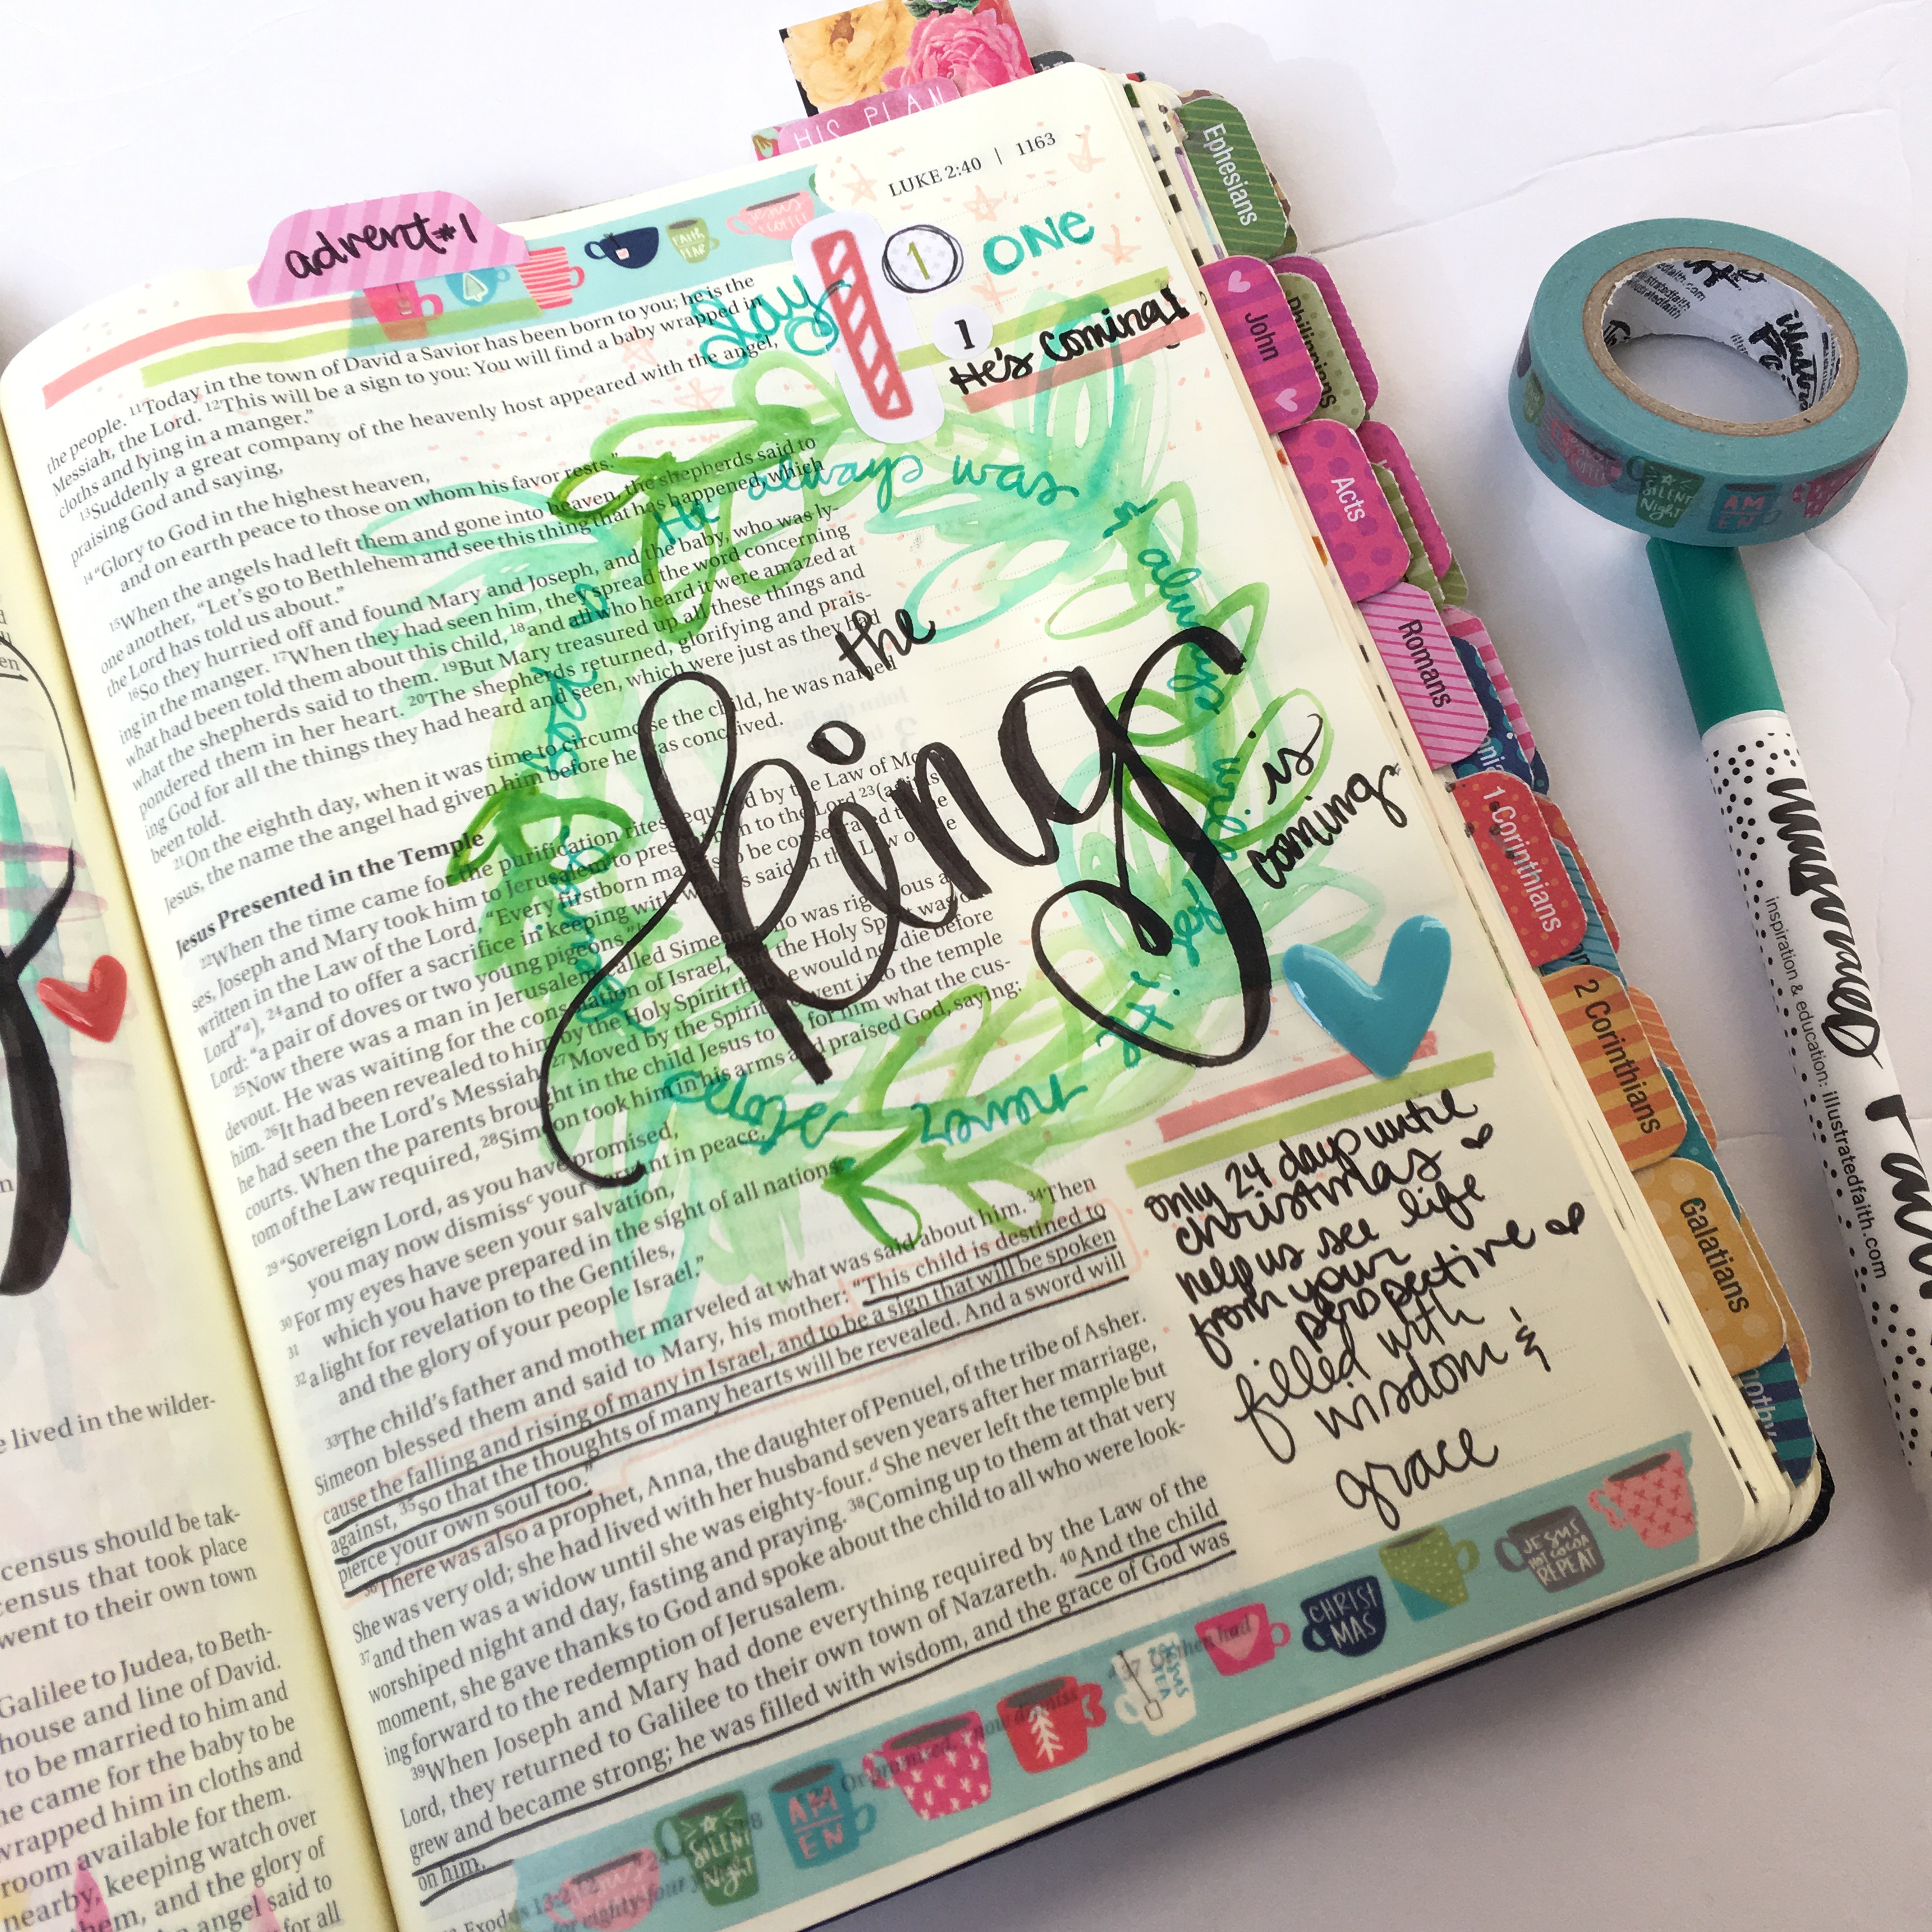 HIS PLAN
LUKE 2:40 | 1163
advent #1
Jesus
FAITH
day
1
ONE
1
He's coming!
the people. 11Today in the town of David a Savior has been born to you; he is the
Messiah, the Lord. 12This will be a sign to you: You will find a baby wrapped in
cloths and lying in a manger.”
13Suddenly a great company of the heavenly host appeared with the angel,
praising God and saying,
14“Glory to God in the highest heaven,
and on earth peace to those on whom his favor rests.”
15When the angels had left them and gone into heaven, the shepherds said to
one another, “Let’s go to Bethlehem and see this thing that has happened, which
the Lord has told us about.”
16So they hurried off and found Mary and Joseph, and the baby, who was ly-
ing in the manger. 17When they had seen him, they spread the word concerning
what had been told them about this child, 18and all who heard it were amazed at
what the shepherds said to them. 19But Mary treasured up all these things and
pondered them in her heart. 20The shepherds returned, glorifying and prais-
ing God for all the things they had heard and seen, which were just as they had
been told.
21On the eighth day, when it was time to circumcise the child, he was named
Jesus, the name the angel had given him before he was conceived.
Jesus Presented in the Temple
22When the time came for the purification rites required by the Law of Mo-
ses, Joseph and Mary took him to Jerusalem to present him to the Lord 23(as it is
written in the Law of the Lord, “Every firstborn male is to be consecrated to the
Lord”a), 24and to offer a sacrifice in keeping with what is said in the Law of the
Lord: “a pair of doves or two young pigeons.”
25Now there was a man in Jerusalem called Simeon, who was righteous and
devout. He was waiting for the consolation of Israel, and the Holy Spirit was on
him. 26It had been revealed to him by the Holy Spirit that he would not die before
he had seen the Lord’s Messiah. 27Moved by the Spirit, he went into the temple
courts. When the parents brought in the child Jesus to do for him what the cus-
tom of the Law required, 28Simeon took him in his arms and praised God, saying:
29“Sovereign Lord, as you have promised,
you may now dismissc your servant in peace.
30For my eyes have seen your salvation,
31 which you have prepared in the sight of all nations:
32a light for revelation to the Gentiles,
and the glory of your people Israel.”
33The child’s father and mother marveled at what was said about him. 34Then
Simeon blessed them and said to Mary, his mother: “This child is destined to
cause the falling and rising of many in Israel, and to be a sign that will be spoken
against, 35so that the thoughts of many hearts will be revealed. And a sword will
pierce your own soul too.”
36There was also a prophet, Anna, the daughter of Penuel, of the tribe of Asher.
She was very old; she had lived with her husband seven years after her marriage,
37and then was a widow until she was eighty-four.d She never left the temple but
worshiped night and day, fasting and praying. 38Coming up to them at that very
moment, she gave thanks to God and spoke about the child to all who were look-
ing forward to the redemption of Jerusalem.
39When Joseph and Mary had done everything required by the Law of the
Lord, they returned to Galilee to their own town of Nazareth. 40And the child
grew and became strong; he was filled with wisdom, and the grace of God was
on him.
He always was & always will be its
the
king
is
coming
only 24 days until
christmas
help us see life
from your
perspective
filled with
wisdom &
grace
SILENT
Night
AM
EN
CHRIST
MAS
JESUS
HOT COCOA
REPEAT
Ephesians
John
Philippians
Acts
Romans
1 Corinthians
2 Corinthians
Galatians
SILENT
Night
AM
EN
illustrated Fai
inspiration & education: illustratedfaith.com
e lived in the wilder-
census should be tak-
census that took place
went to their own town
Galilee to Judea, to Beth-
house and line of David.
to be married to him and
he came for the baby to be
wrapped him in cloths and
room available for them.
nearby, keeping watch over
them, and the glory of
angel said to
for all